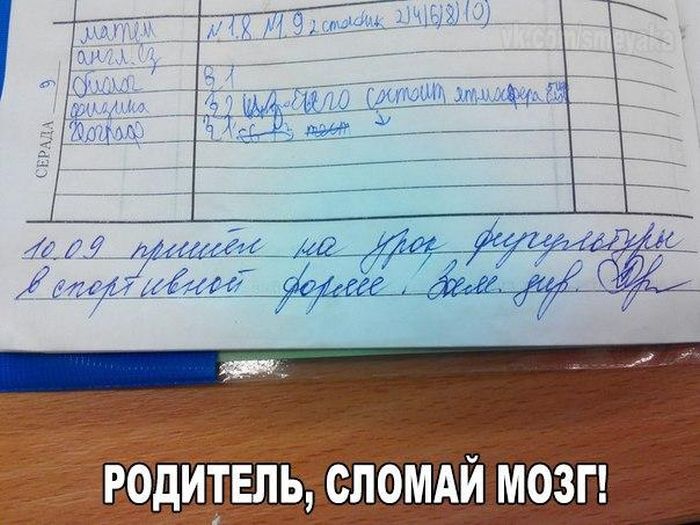 vk.com/smeyaka
матем №1.8 №1.9 2 столбик 2)4)6)8)10)
англ.
биолог § 1
физика § 2 из чего состоит атмосфера
географ § 1
СЕРАДА 9
10.09 пришёл на урок физкультуры
в спортивной форме! Зам. дир.
РОДИТЕЛЬ, СЛОМАЙ МОЗГ!